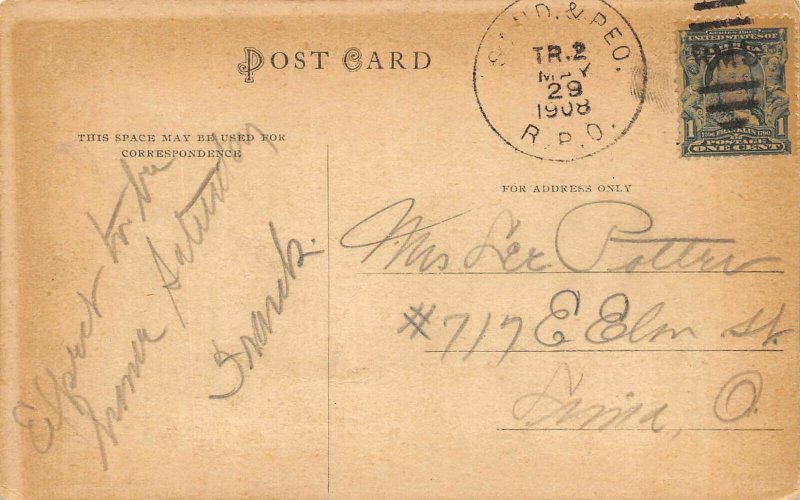 POST CARD
THIS SPACE MAY BE USED FOR
CORRESPONDENCE
Expect to be
home Saturday
Frank.
SAND. & PEO.
TR. 2
MAY
29
1908
R.P.O.
RMS
SERIES 1902
UNITED STATES OF
AMERICA
1 1706 FRANKLIN 1790 1
POSTAGE
ONE CENT
FOR ADDRESS ONLY
Mrs Potter
#717 E Elm St
Lima, O.